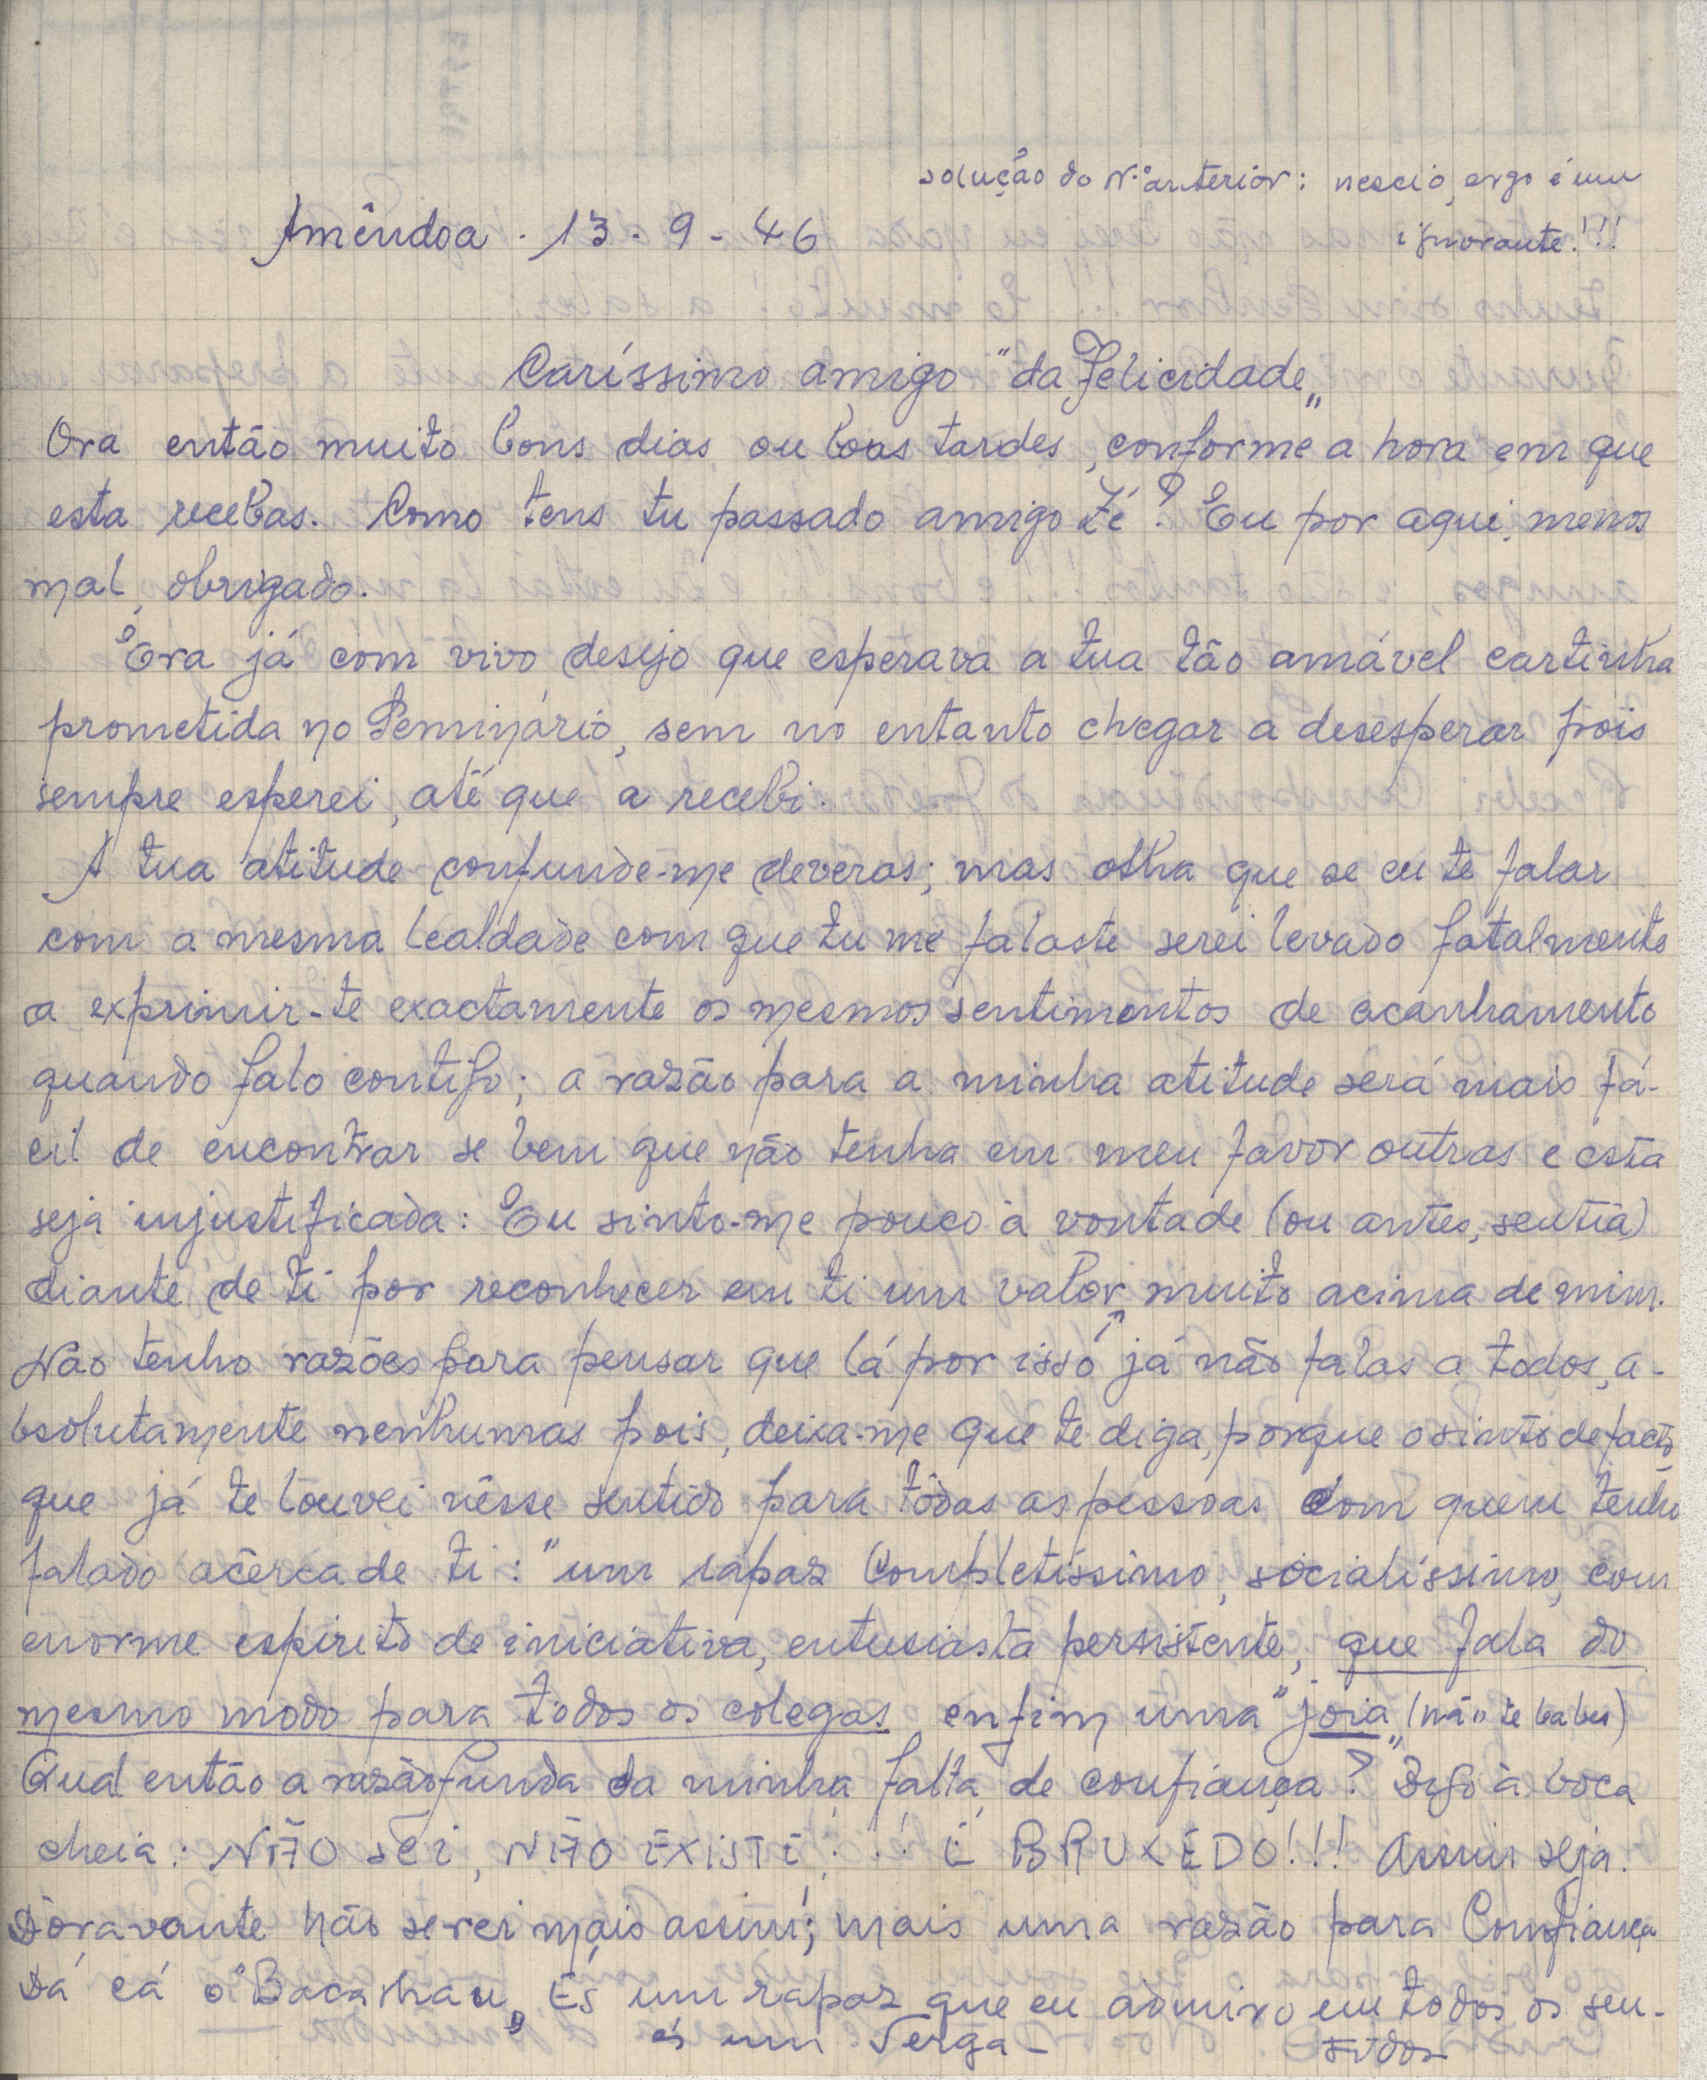 solução do N.º anterior: nescio, ergo é um
ignorante!!!
Amêndoa . 13 . 9 - 46
Caríssimo amigo "da Felicidade„
Ora então muito bons dias ou boas tardes, conforme a hora em que
esta recebas. Como tens tu passado amigo Zé? Eu por aqui, menos
mal, obrigado.
Era já com vivo desejo que esperava a tua tão amável cartinha
prometida no Seminário, sem no entanto chegar a desesperar pois
sempre esperei, até que a recebi.
A tua atitude confunde-me deveras; mas olha que se eu te falar
com a mesma lealdade com que tu me falaste serei levado fatalmente
a exprimir-te exactamente os mesmos sentimentos de acanhamento
quando falo contigo; a razão para a minha atitude será mais fá-
cil de encontrar se bem que não tenha em meu favor outras e esta
seja injustificada: Eu sinto-me pouco à vontade (ou antes, sentia)
diante de ti por reconhecer em ti um valor muito acima de mim.
Não tenho razões para pensar que lá por isso já não falas a todos, a-
bsolutamente nenhumas pois, deixa-me que te diga, porque o sinto de facto
que já te louvei nêsse sentido para tôdas as pessoas com quem tenho
falado acêrca de ti: "um rapaz completíssimo, socialíssimo, com
enorme espirito de iniciativa, entusiasta persistente, que fala do
mesmo modo para todos os colegas enfim uma "joia„ (não te babes)
Qual então a razão funda da minha falta de confiança? Digo à boca
cheia: NÃO SEI, NÃO EXISTE; ... É BRUXÊDO!!! Assim seja.
Dòravante não serei mais assim; mais uma razão para Confiança
Dá cá o "Bacalhau„ És um rapaz que eu admiro em todos os sen-
és um Verga - tidos